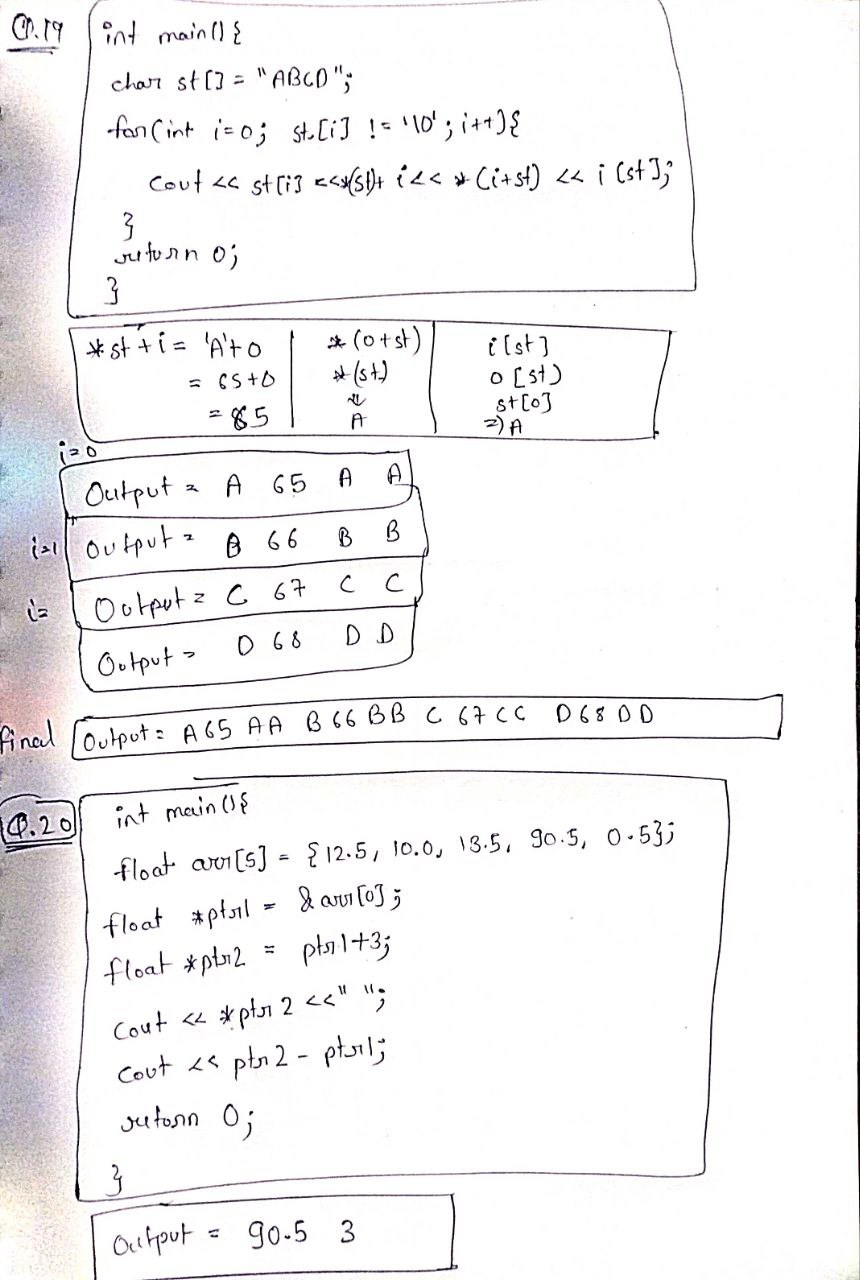 Q.19
int main() {
char st[] = "ABCD";
for(int i=0; st[i] != '\0'; i++){
cout << st[i] <<*(st)+ i<< *(i+st) << i[st];
}
return 0;
}
*st + i = 'A'+0
= 65+0
= 65
*(0+st)
*(st)
A
i[st]
0[st]
st[0]
=) A
i=0
Output = A 65 A A
i=1 Output = B 66 B B
i= Output = C 67 C C
Output = D 68 D D
final Output = A65 AA B66BB C 67CC D68DD
Q.20
int main(){
float arr[5] = {12.5, 10.0, 13.5, 90.5, 0.5};
float *ptr1 = &arr[0];
float *ptr2 = ptr1+3;
cout << *ptr2 <<" ";
cout << ptr2 - ptr1;
return 0;
}
Output = 90.5 3